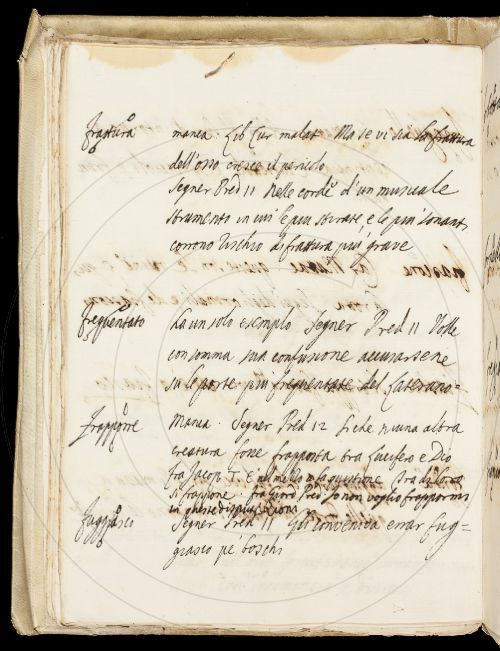 frattura manca. Lib Cur malat Ma se vi sia la frattura
dell'osso cresce il pericolo
Segner Pred 11 Nelle corde d'un musicale
strumento in cui le piu stirate, e le piu sonanti
corrono rischio di frattura piu grave
frequentato Ha un solo esemplo Segner Pred 11 Volle
con somma sua confusione accusarsene
su le porte piu frequentate del Laterano=
frapporre Manca. Segner Pred 12 Si che niuna altra
creatura fosse frapposta tra Lucifero e Dio
fra Jacop. T. E nel mello questione
si frappone fra Giord Pred Io non voglio frappormi
in queste
fuggiasco Segner Pred 11 Gli convenida errar fug=
giasco pe' boschi